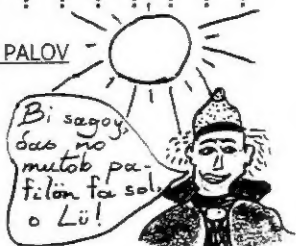 PALOV
Bi sagoy,
das no
mutob pa-
filön fa sol,
o Lü!